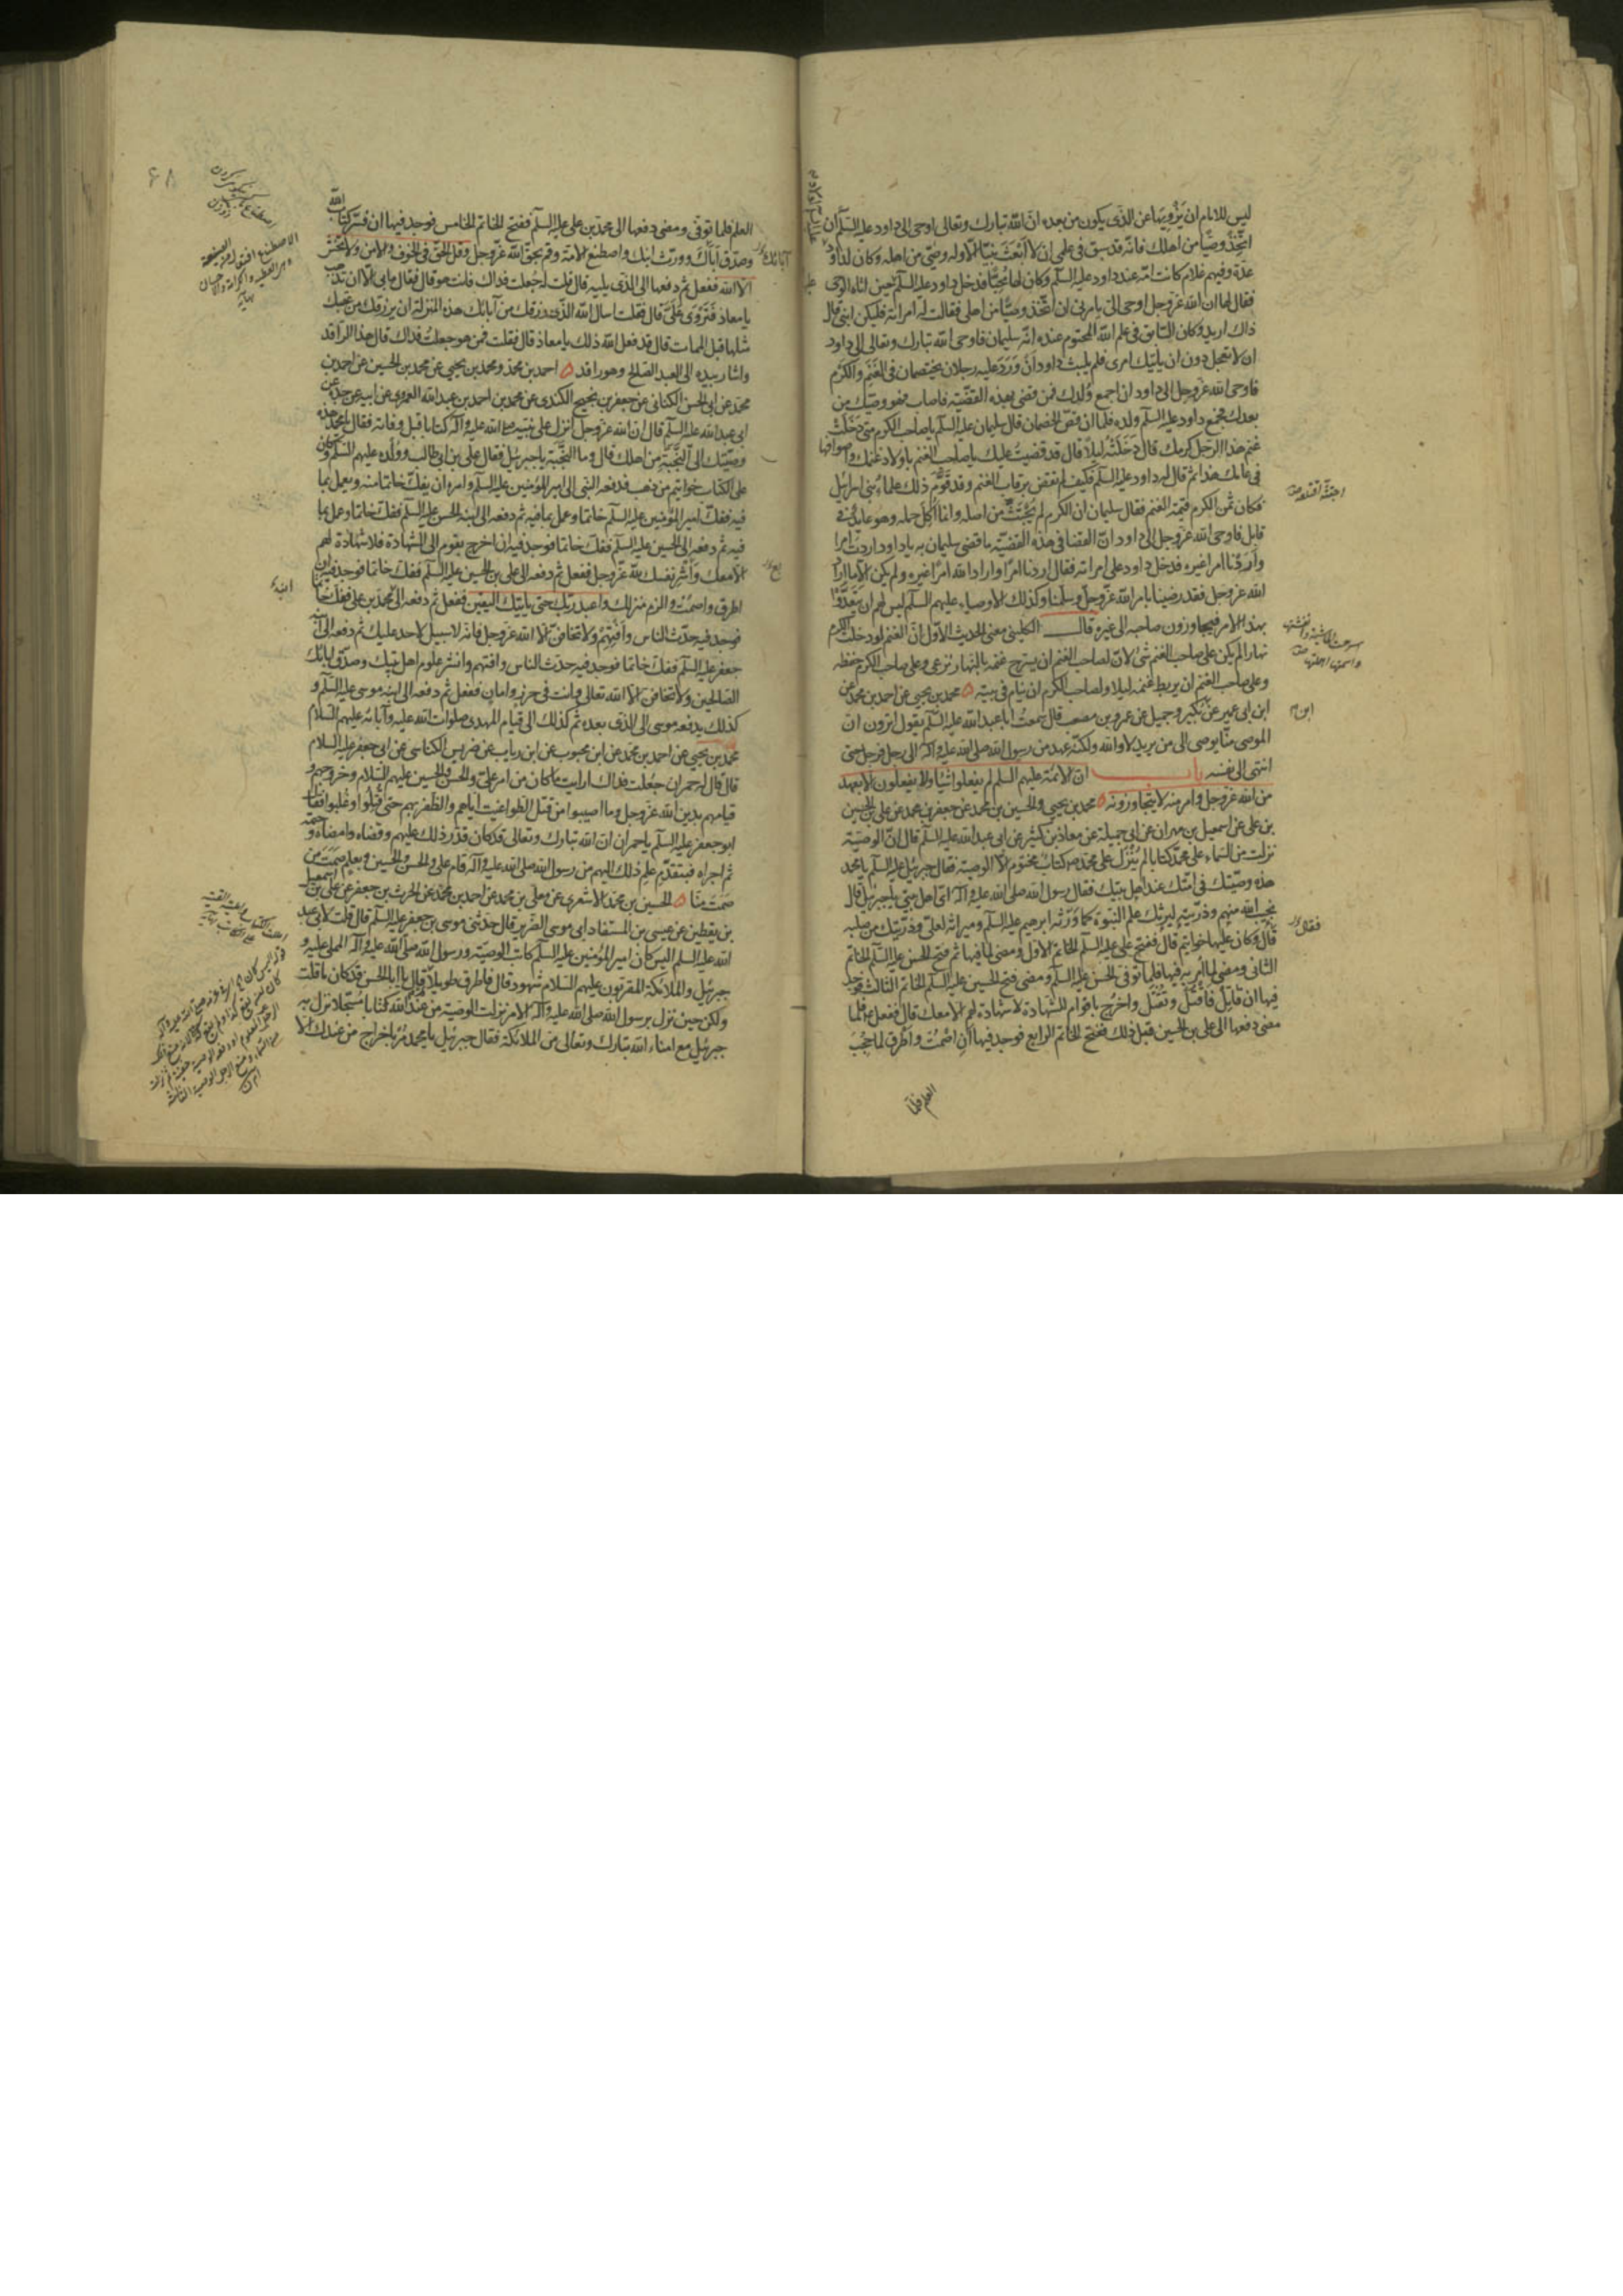 ليس للامام ان يزويها عن الذى يكون من بعده ان الله تبارك وتعالى اوحى الى داود عليه السلم ان
اتخذ وصيا من اهلك فانه قد سبق فى علمى ان لا ابعث نبيا الا وله وصى من اهله وكان لداود
عدة وفيهم غلام كانت امه عند داود عليه السلم وكان لها محبا فدخل داود عليه السلم حين اتاه الوحى
فقال لها ان الله عز وجل اوحى الى يامرنى ان اتخذ وصيا من اهلى فقالت له امراته فليكن ابنى قال
ذلك اريد وكان السابق فى علم الله المحتوم عنده انه سليمان فاوحى الله تبارك وتعالى الى داود
ان لا تعجل دون ان ياتيك امرى فلم يلبث داود ان ورد عليه رجلان يختصمان فى الغنم والكرم
فاوحى الله عز وجل الى داود ان اجمع ولدك فمن قضى بهذه القضية فاصاب فهو وصيك من
بعدك فجمع داود عليه السلم ولده فلما ان قص الخصمان قال سليمان عليه السلم يا صاحب الكرم متى دخلت
غنم هذا الرجل كرمك قال دخلته ليلا قال قد قضيت عليك يا صاحب الغنم باولاد غنمك واصوافها
فى عامك هذا ثم قال له داود عليه السلم فكيف لم تقض برقاب الغنم وقد قوم ذلك علماء بنى اسرائيل
فكان ثمن الكرم قيمة الغنم فقال سليمان ان الكرم لم يجتث من اصله وانما اكل حمله وهو عايد فى
قابل فاوحى الله عز وجل الى داود ان القضا فى هذه القضية ما قضى سليمان به يا داود اردت امرا
واردنا امرا غيره فدخل داود على امراته فقال اردنا امرا واراد الله امرا غيره ولم يكن الا ما اراد
الله عز وجل فقد رضينا بامر الله عز وجل وسلمنا وكذلك الاوصياء عليهم السلم ليس لهم ان يتعدوا
بهذا الامر فيجاوزون صاحبه الى غيره قال الكلينى معنى الحديث الاول ان الغنم لو دخلت الكرم
نهارا لم يكن على صاحب الغنم شئ لان لصاحب الغنم ان يسرح غنمه بالنهار ترعى وعلى صاحب الكرم حفظه
وعلى صاحب الغنم ان يربط غنمه ليلا ولصاحب الكرم ان ينام فى بيته محمد بن يحيى عن احمد بن محمد عن
ابن ابى عمير عن بكير وجميل عن عمرو بن مصعب قال سمعت ابا عبد الله عليه السلم يقول اترون ان
الموصى منا يوصى الى من يريد لا والله ولكنه عهد من رسول الله صلى الله عليه وآله الى رجل فرجل حتى
انتهى الى نفسه باب ان الائمة عليهم السلم لم يفعلوا شيئا ولا يفعلون الا بعهد
من الله عز وجل وامر منه لا يتجاوزونه محمد بن يحيى والحسين بن محمد عن جعفر بن محمد عن على بن الحسين
بن على عن اسمعيل بن مهران عن ابى جميلة عن معاذ بن كثير عن ابى عبد الله عليه السلم قال ان الوصية
نزلت من السماء على محمد كتابا لم ينزل على محمد ص كتاب مختوم الا الوصية فقال جبرئيل عليه السلم يا محمد
هذه وصيتك فى امتك عند اهل بيتك فقال رسول الله صلى الله عليه وآله اى اهل بيتى يا جبرئيل قال
نجيب الله منهم وذريته ليرثك علم النبوة كما ورثه ابرهيم عليه السلم وميراثه لعلى وذريتك من صلبه
قال وكان عليها خواتيم قال ففتح على عليه السلم الخاتم الاول ومضى لما فيها ثم فتح الحسن عليه السلم الخاتم
الثانى ومضى لما امر به فيها فلما توفى الحسن عليه السلم ومضى فتح الحسين عليه السلم الخاتم الثالث فوجد
فيها ان قاتل فاقتل وتقتل واخرج باقوام للشهادة لا شهادة لهم الا معك قال ففعل فلما
مضى دفعها الى على بن الحسين قبل ذلك ففتح الخاتم الرابع فوجد فيها ان اصمت واطرق لما حجب
العلم فلما
اجتثه اقتلعه
ابن م
فقال
العلم فلما توفى ومضى دفعها الى محمد بن على عليه السلم ففتح الخاتم الخامس فوجد فيها ان فسر كتاب الله
وصدق اباك وورث ابنك واصطنع الامة وقم بحق الله عز وجل وقل الحق فى الخوف والامن ولا تخش
الا الله ففعل ثم دفعها الى الذى يليه قال قلت له جعلت فداك فانت هو قال فقال ما بى الا ان تذهب
يا معاذ فتروى على قال فقلت اسال الله الذى رزقك من آبائك هذه المنزلة ان يرزقك من عقبك
مثلها قبل الممات قال قد فعل الله ذلك يا معاذ قال فقلت فمن هو جعلت فداك قال هذا الراقد
واشار بيده الى العبد الصالح وهو راقد احمد بن محمد ومحمد بن يحيى عن محمد بن الحسين عن احمد بن
محمد عن ابى الحسن الكنانى عن جعفر بن نجيح الكندى عن محمد بن احمد بن عبد الله العمرى عن ابيه عن جده عن
ابى عبد الله عليه السلم قال ان الله عز وجل انزل على نبيه صلى الله عليه وآله كتابا قبل وفاته فقال يا محمد هذه
وصيتك الى النجبة من اهلك قال وما النجبة يا جبرئيل فقال على بن ابى طالب وولده عليهم السلم وكان
على الكتاب خواتيم من ذهب فدفعه النبى الى امير المؤمنين عليه السلم وامره ان يفك خاتما منه ويعمل بما
فيه ففك امير المؤمنين عليه السلم خاتما وعمل بما فيه ثم دفعه الى ابنه الحسن عليه السلم ففك خاتما وعمل بما
فيه ثم دفعه الى الحسين عليه السلم ففك خاتما فوجد فيه ان اخرج بقوم الى الشهادة فلا شهادة لهم
الا معك واشر نفسك لله عز وجل ففعل ثم دفعه الى على بن الحسين عليه السلم ففك خاتما فوجد فيه ان
اطرق واصمت والزم منزلك واعبد ربك حتى ياتيك اليقين ففعل ثم دفعه الى محمد بن على ففك خاتما
فوجد فيه حدث الناس وافتهم ولا تخافن الا الله عز وجل فانه لا سبيل لاحد عليك ثم دفعه الى ابنه
جعفر عليه السلم ففك خاتما فوجد فيه حدث الناس وافتهم وانشر علوم اهل بيتك وصدق ابائك
الصالحين ولا تخافن الا الله تعالى وانت فى حرز وامان ففعل ثم دفعه الى ابنه موسى عليه السلم و
كذلك يدفعه موسى الى الذى بعده ثم كذلك الى قيام المهدى صلوات الله عليه وآبائه عليهم السلام
محمد بن يحيى عن احمد بن محمد عن ابن محبوب عن ابن رياب عن ضريس الكناسى عن ابى جعفر عليه السلام
قال قال له حمران جعلت فداك ارايت ما كان من امر على والحسن والحسين عليهم السلام وخروجهم و
قيامهم بدين الله عز وجل وما اصيبوا من قتل الطواغيت اياهم والظفر بهم حتى قتلوا وغلبوا فقال
ابو جعفر عليه السلم يا حمران ان الله تبارك وتعالى قد كان قدر ذلك عليهم وقضاه وامضاه وحتمه
ثم اجراه فبتقدم علم ذلك اليهم من رسول الله صلى الله عليه وآله قام على والحسن والحسين وبعلم صمت من
صمت منا الحسين بن محمد الاشعرى عن معلى بن محمد عن احمد بن محمد عن الحرث بن جعفر عن على بن اسمعيل
بن يقطين عن عيسى بن المستفاد ابى موسى الضرير قال حدثنى موسى بن جعفر عليه السلم قال قلت لابى عبد
الله عليه السلم اليس كان امير المؤمنين عليه السلم كاتب الوصية ورسول الله صلى الله عليه وآله المملى عليه و
جبرئيل والملائكة المقربون عليهم السلام شهود قال فاطرق طويلا ثم قال يا ابا الحسن قد كان ما قلت
ولكن حين نزل برسول الله صلى الله عليه وآله الامر نزلت الوصية من عند الله كتابا مسجلا نزل به
جبرئيل مع امناء الله تبارك وتعالى من الملائكة فقال جبرئيل يا محمد مر باخراج من عندك الا
آبائك
٦٨